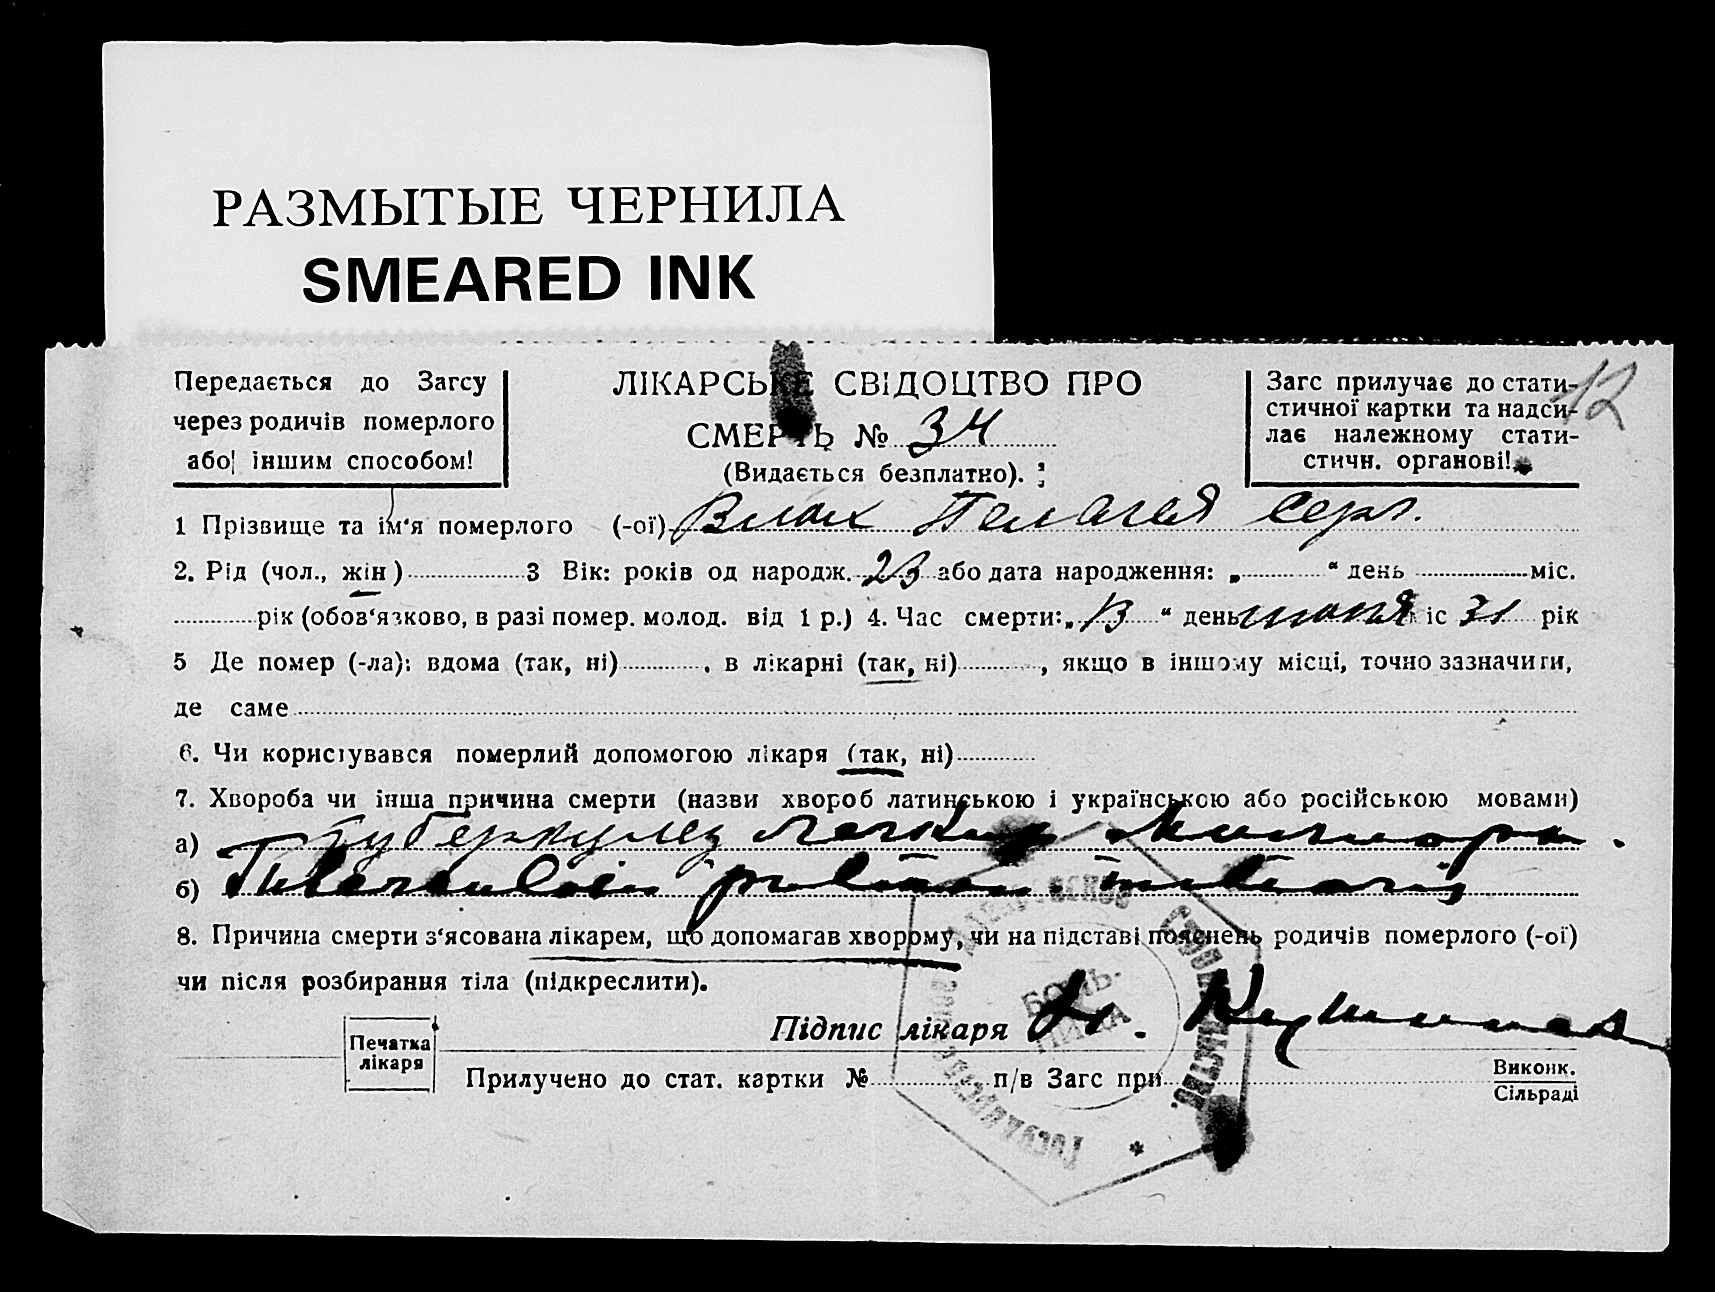 РАЗМЫТЫЕ ЧЕРНИЛА
SMEARED INK
Передається до Загсу
через родичів померлого
або іншим способом!
ЛІКАРСЬКЕ СВІДОЦТВО ПРО
СМЕРТЬ № 34
(Видається безплатно).
Загс прилучає до стати-
стичної картки та надси-
лає належному стати-
стичн. органові!
12
1 Прізвище та ім'я померлого (-ої) Влах Пелагея Серг.
2. Рід (чол., жін) 3 Вік: років од народж. 23 або дата народження: „ “ день міс.
рік (обов'язково, в разі помер. молод. від 1 р.) 4. Час смерти: „13“ день іс 31 рік
5 Де помер (-ла): вдома (так, ні) , в лікарні (так, ні) , якщо в іншому місці, точно зазначити,
де саме
6. Чи користувався померлий допомогою лікаря (так, ні)
7. Хвороба чи інша причина смерти (назви хвороб латинською і українською або російською мовами)
а) Туберкулез легких
б) Tuberculosis miliaris
8. Причина смерти з'ясована лікарем, що допомагав хворому, чи на підставі пояснень родичів померлого (-ої)
чи після розбирання тіла (підкреслити).
Підпис лікаря
Печатка
лікаря
Прилучено до стат. картки № п/в Загс при Виконк.
Сільраді